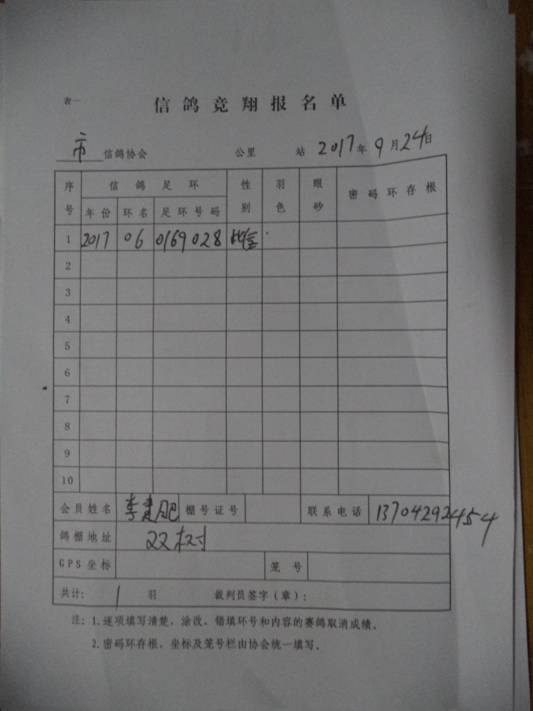 表一
信鸽竞翔报名单
市 信鸽协会 公里 站 2017年9月24日
序号 信鸽足环 性别 羽色 眼砂 密码环存根
年份 环名 足环号码
1 2017 06 0169028
2
3
4
5
6
7
8
9
10
会员姓名 李 棚号证号 联系电话 13704292454
鸽棚地址 双树
GPS坐标 笼号
共计: 1 羽 裁判员签字(章):
注: 1.逐项填写清楚，涂改、错填环号和内容的赛鸽取消成绩。
2.密码环存根、坐标及笼号栏由协会统一填写。